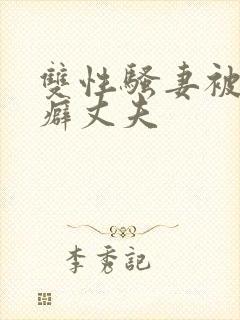 雙性騷妻被
癖丈夫
李秀記